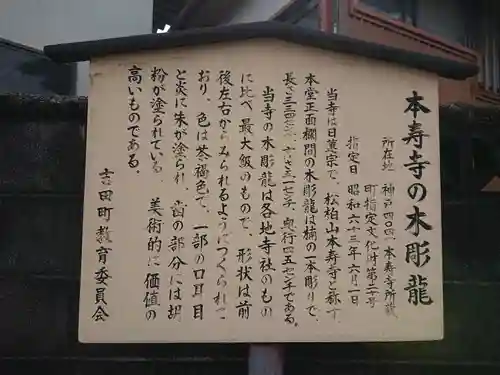 本寿寺の木彫龍
所在地 神戸四〇四 本寿寺所蔵
町指定文化財第二十号
指定日 昭和六十三年六月一日
当寺は日蓮宗で、松柏山本寿寺と称す。
本堂正面欄間の木彫龍は楠の一本彫りで、
長さ三三四センチ、高さ三一七センチ、奥行四五センチである。
当寺の木彫龍は各地寺社のもの
に比べ最大級のもので、形状は前
後左右からみられるようにつくられて
おり、色は茶褐色で、一部の口耳目
と炎に朱が塗られ、歯の部分には胡
粉が塗られている。 美術的に価値の
高いものである。
吉田町教育委員会